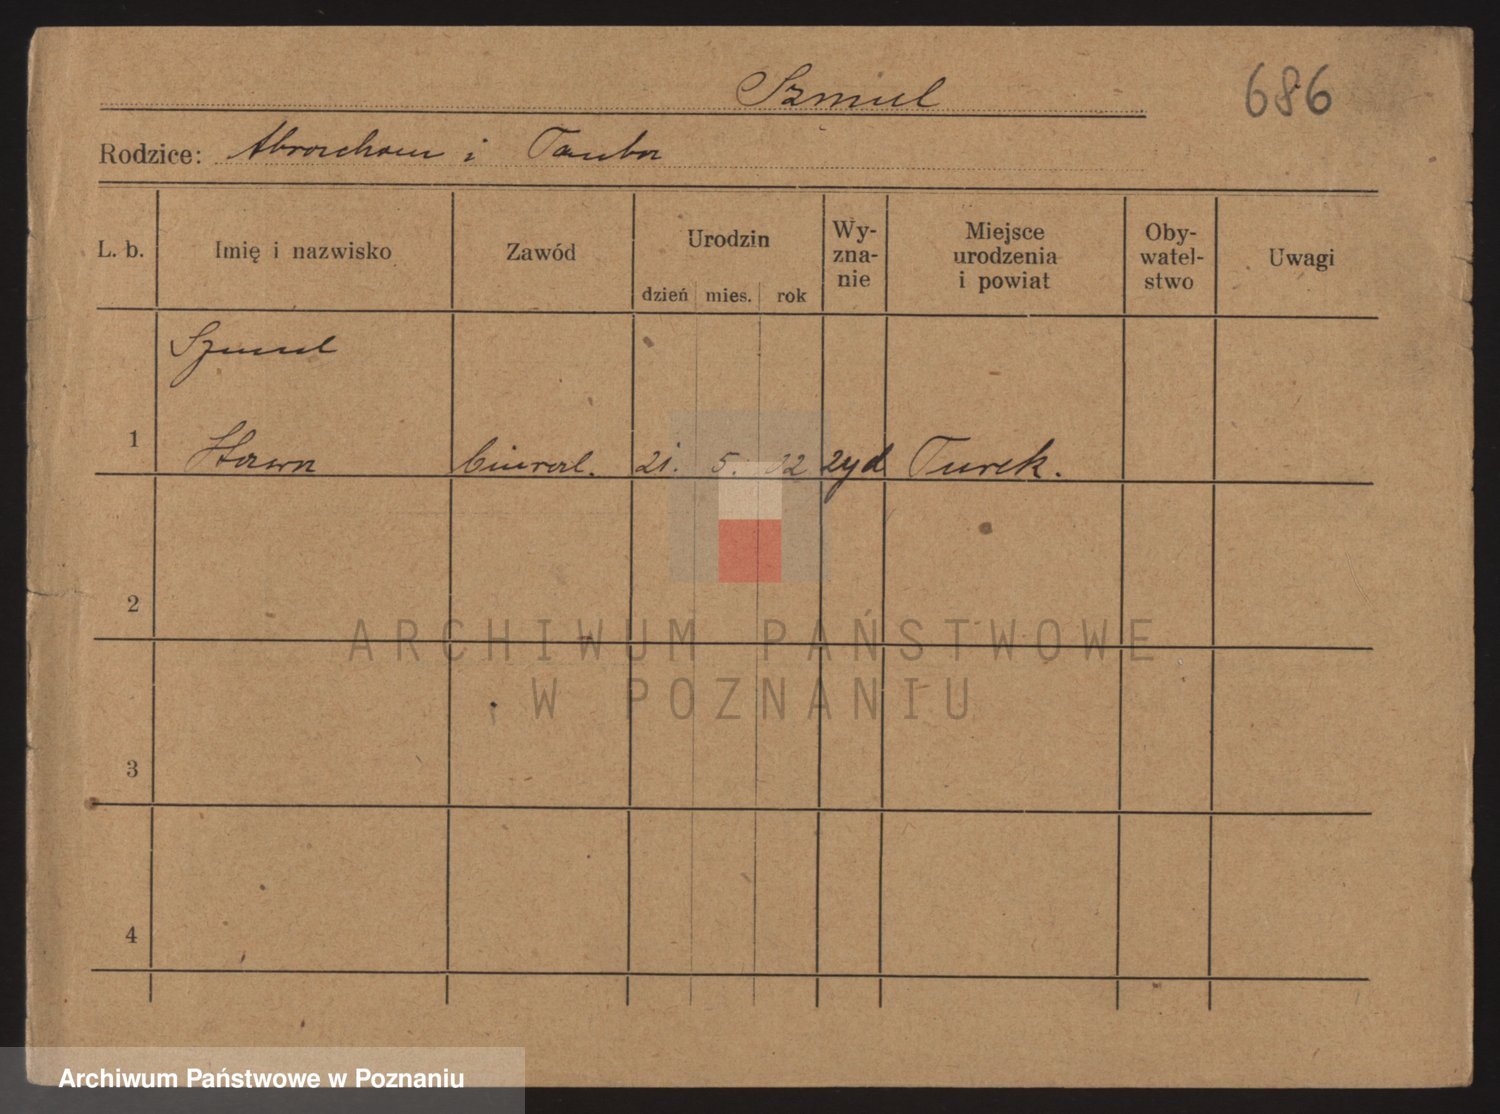 Szmul
686
Rodzice: Abracham i Tauba
L. b. Imię i nazwisko Zawód Urodzin dzień mies. rok Wy-zna-nie Miejsce urodzenia i powiat Oby-watel-stwo Uwagi
Szmul
1 21. 5. 02 żyd Turek.
2
3
4
ARCHIWUM PAŃSTWOWE
W POZNANIU
Archiwum Państwowe w Poznaniu